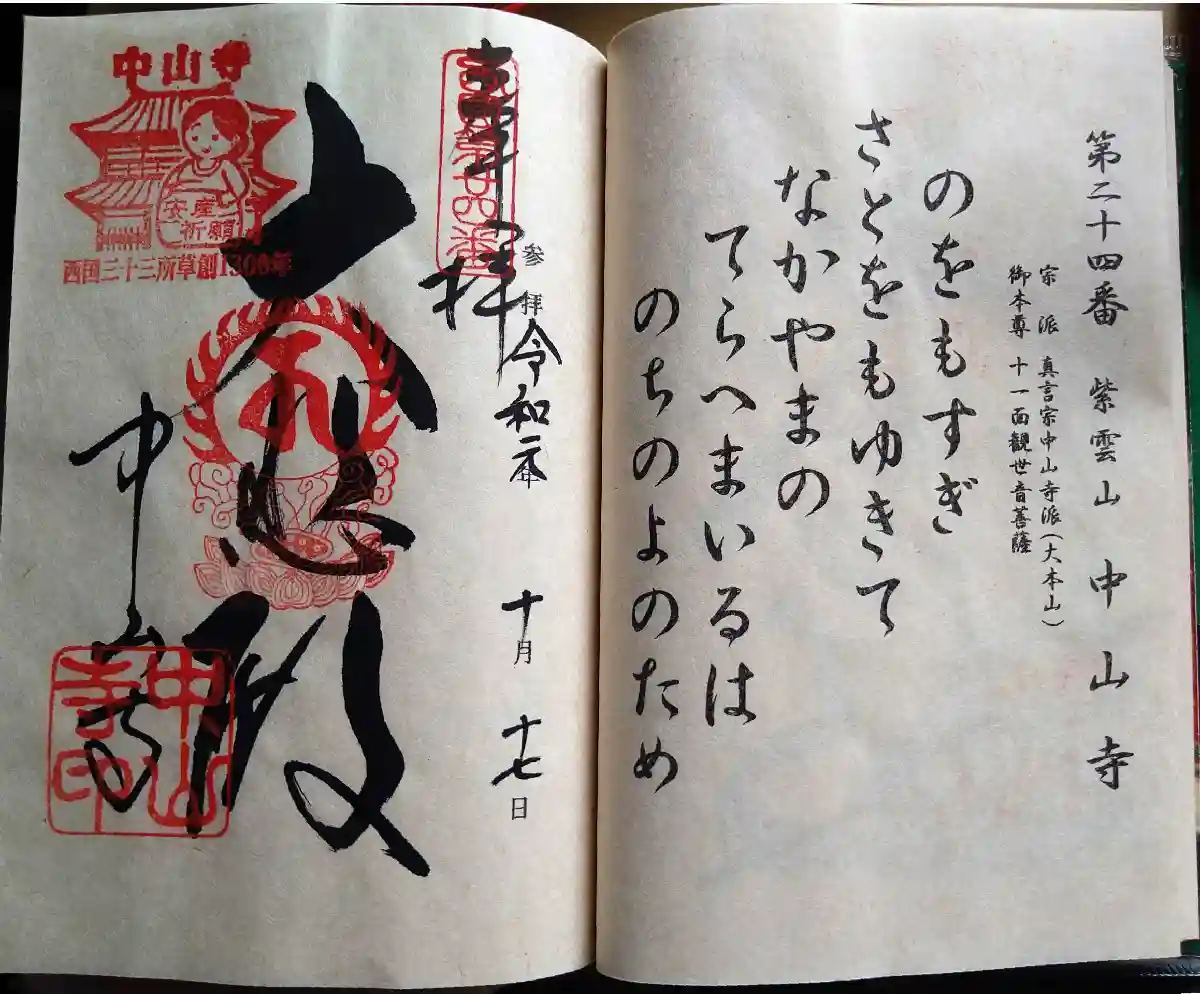 第二十四番 紫雲山 中山寺
宗派 真言宗中山寺派(大本山)
御本尊 十一面観世音菩薩
のをもすぎ
さとをもゆきて
なかやまの
てらへまいるは
のちのよのため
奉拝
参拝 令和元年 十月 十七日
大悲殿
中山寺
中山寺
安産
祈願
西国三十三所草創1300年
中山
寺印